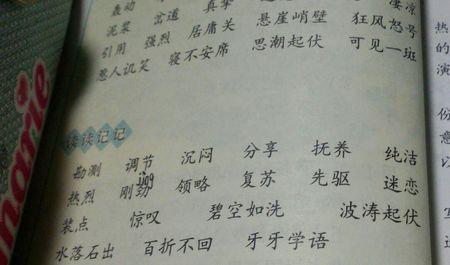 轰动 岔道 真
泥浆 强烈 居庸关 悬崖峭壁 狂风怒号 凄凉
引用 寝不安席 思潮起伏 可见一斑
惹人讥笑
读读记记
勘测 调节 沉闷 分享 抚养 纯洁
热烈 刚劲 领略 复苏 先驱 迷恋
jìng
装点 惊叹 碧空如洗 波涛起伏
水落石出 百折不回 牙牙学语
热
的
演
marie